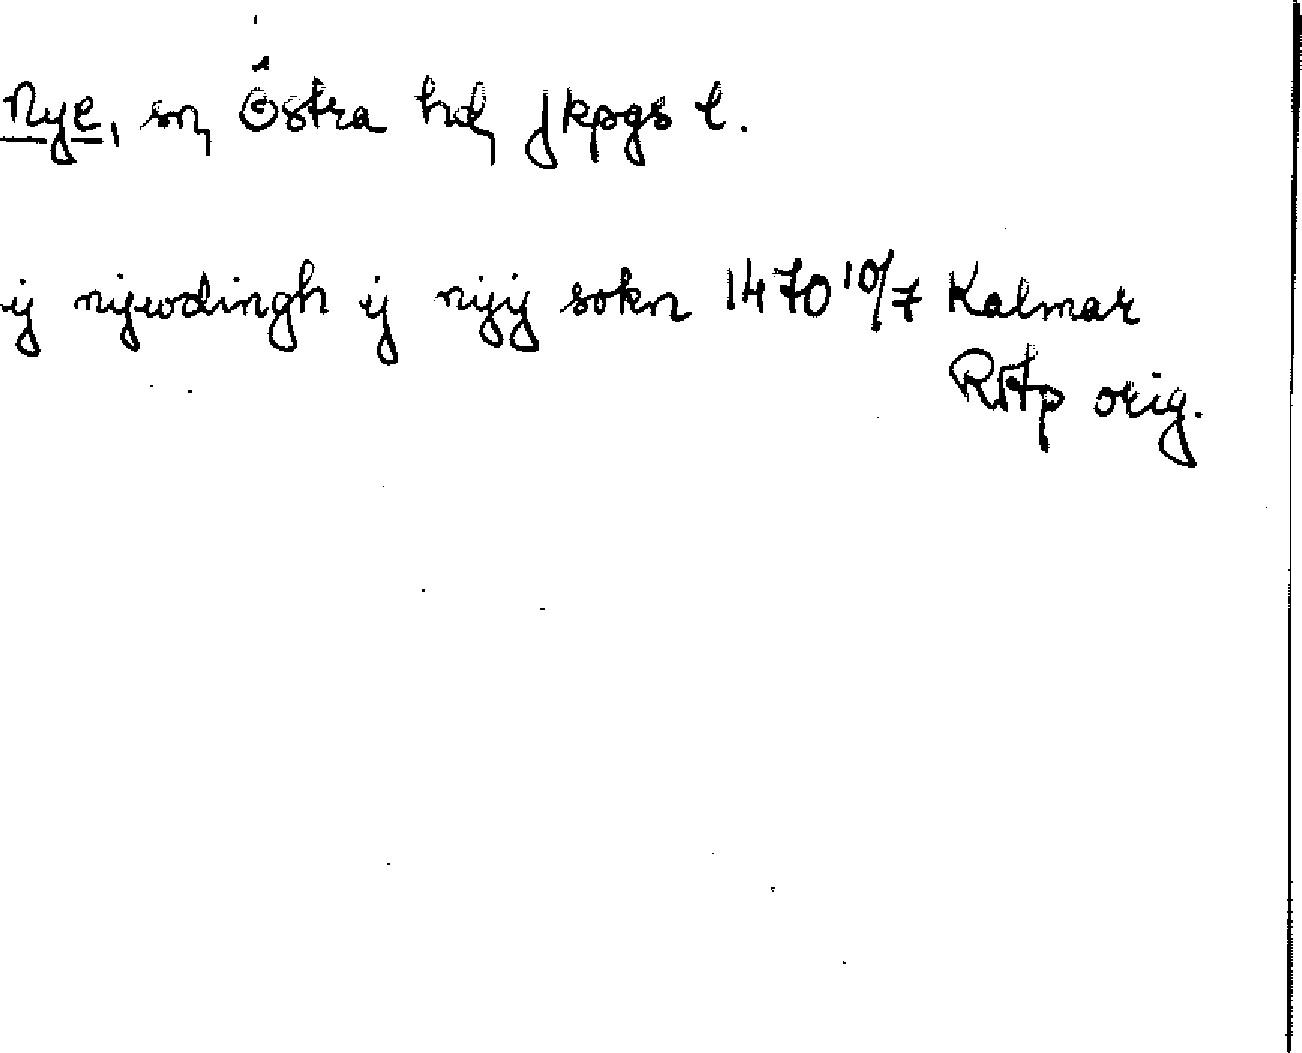 Nye, sn, Östra hd, Jkpgs l.
ij nijwdingh ij nyij sokn 1470 10/7 Kalmar
RAp orig.